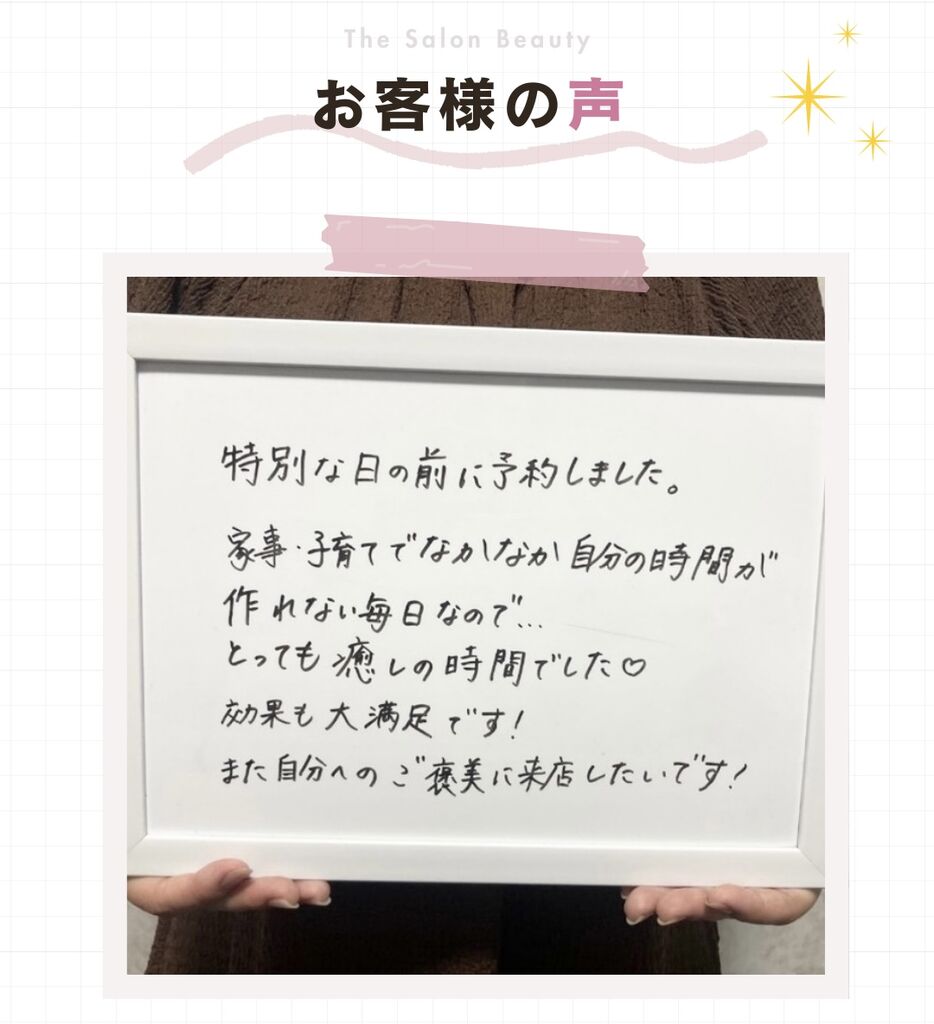 The Salon Beauty
お客様の声
特別な日の前に予約しました。
家事・子育てでなかなか自分の時間が
作れない毎日なので…
とっても癒しの時間でした♡
効果も大満足です!
また自分へのご褒美に来店したいです!